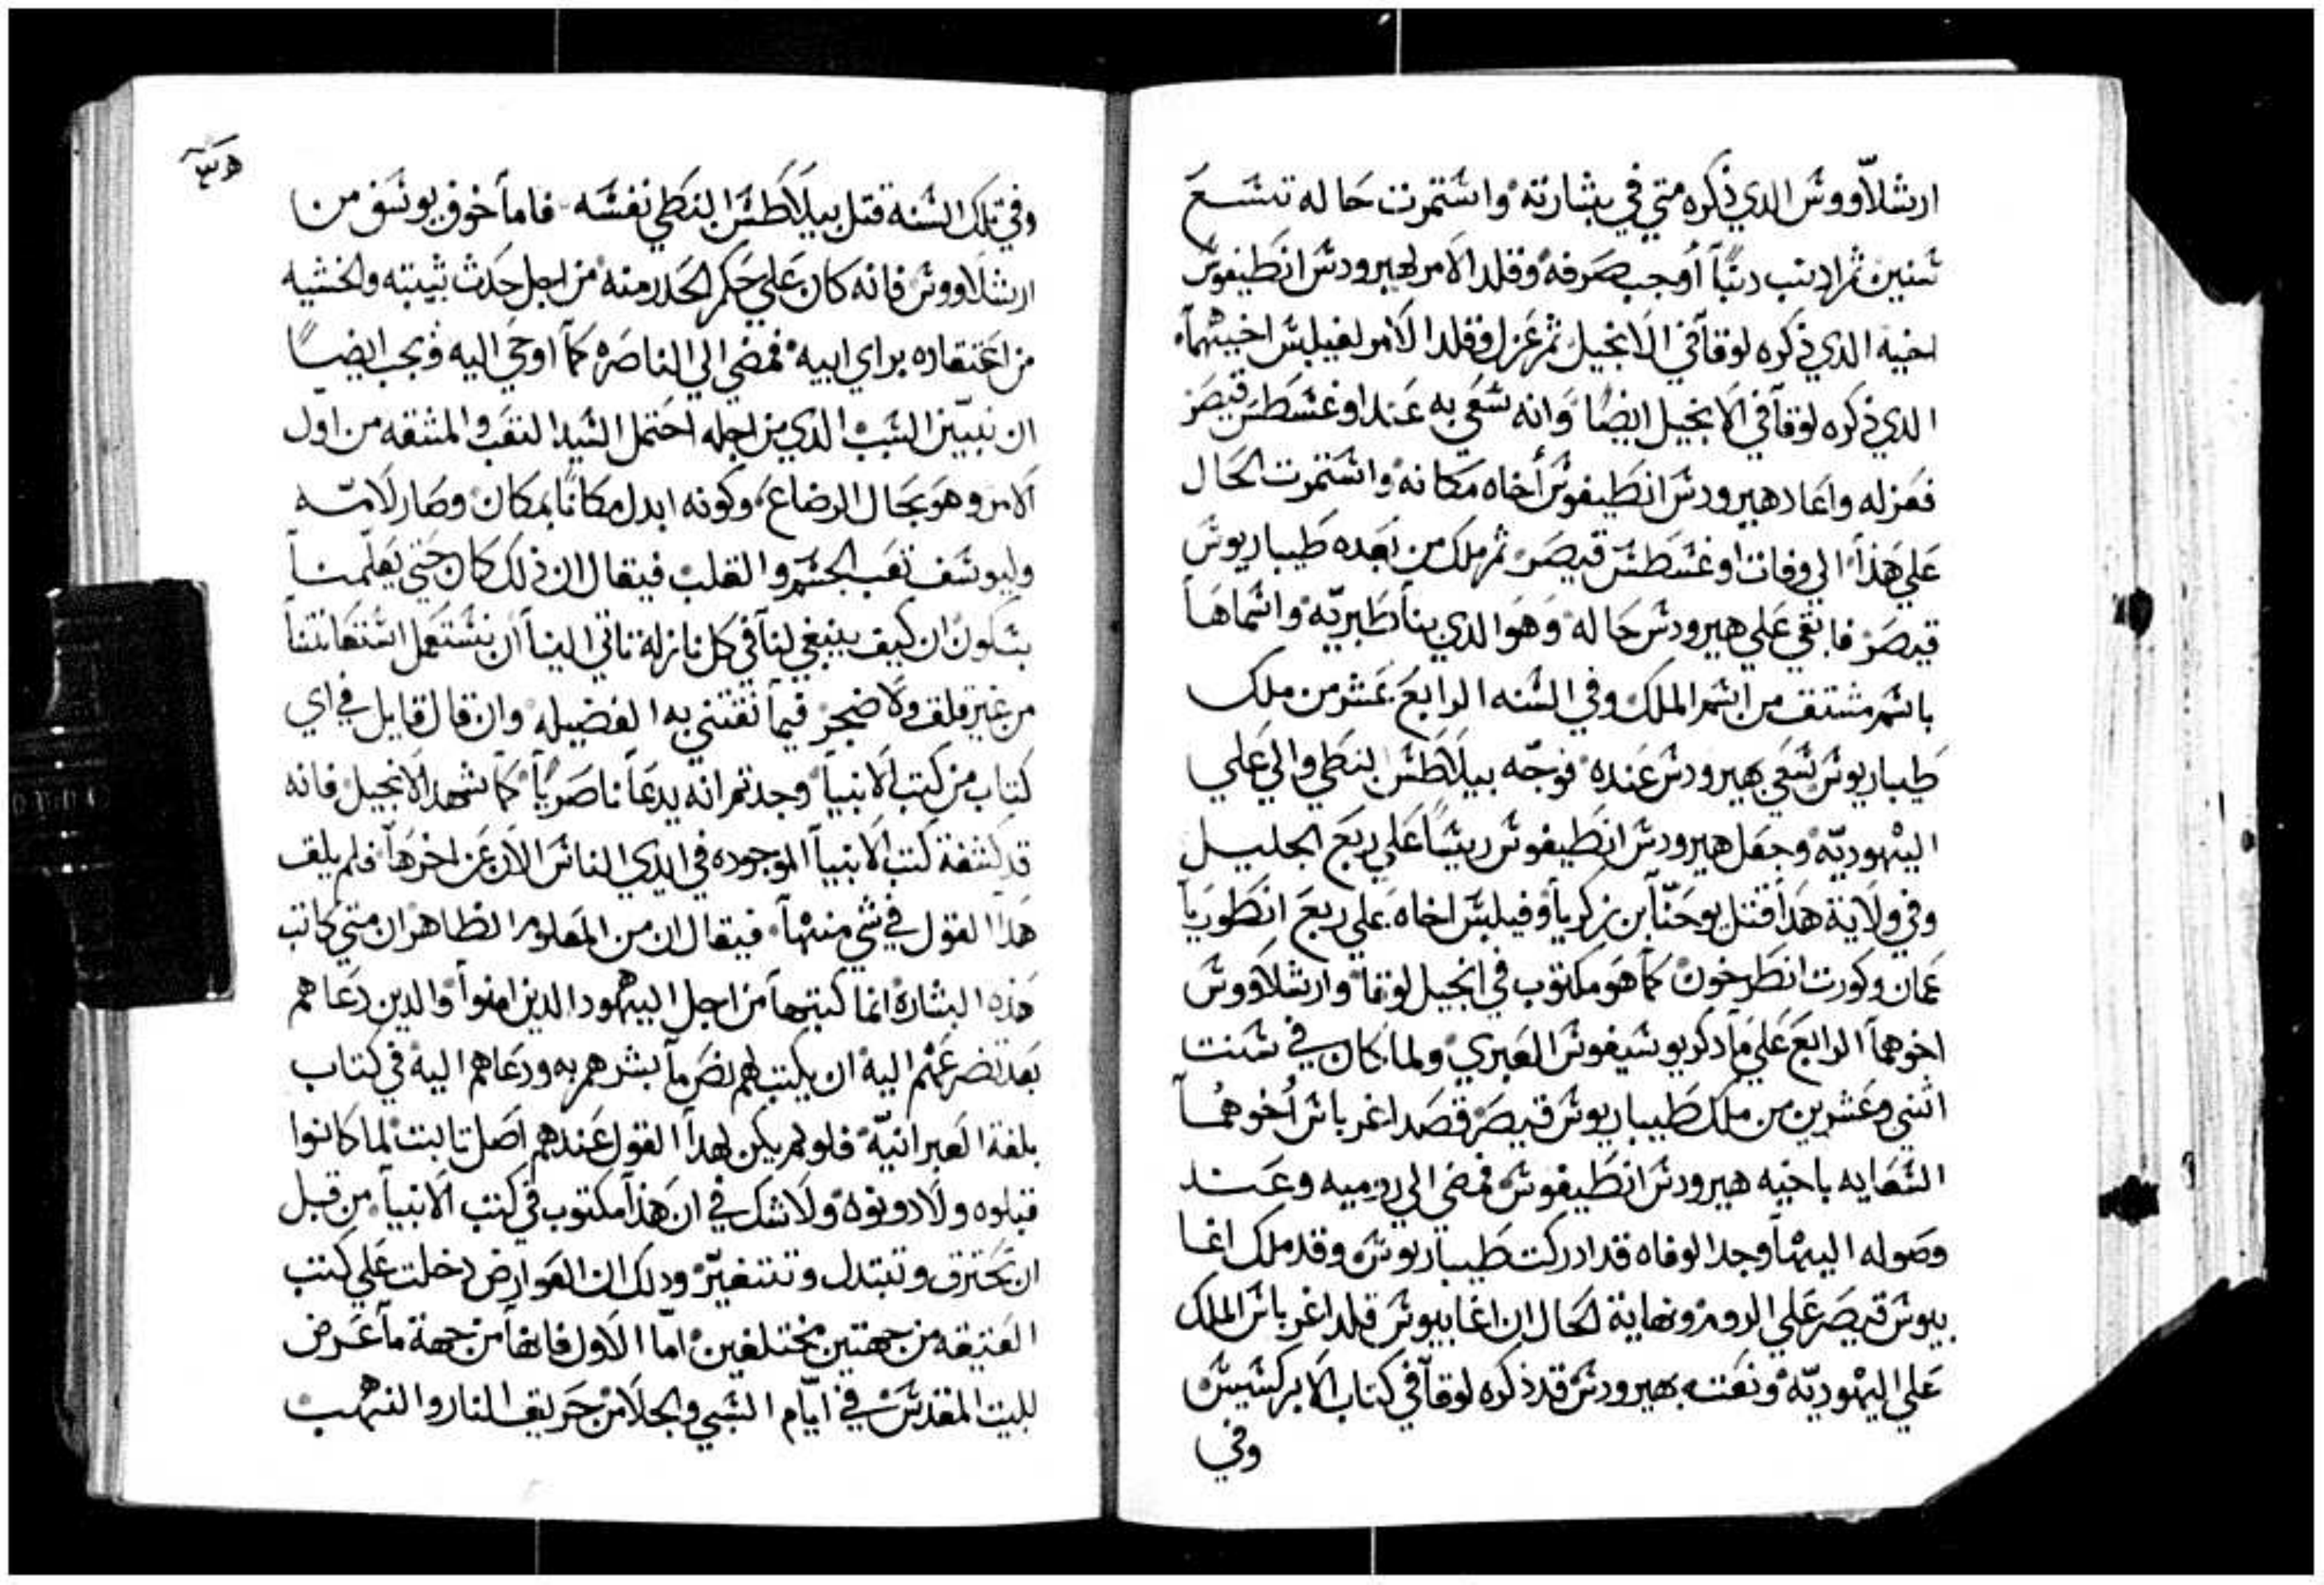 ارشلاووش الدي ذكره متي في بشارته واشتمرت حاله تشع
شنين ثم اذنب دنبًا أوجب صرفه وقلد الامر لهيرودش انطيفوش
اخيه الذي ذكره لوقا في الانجيل ثم عزل وقلد الامر لفيلبش اخيهما
الدي ذكره لوقا في الانجيل ايضًا وانه شعي به عند اوغشطش قيصر
فعزله واعاد هيرودش انطيفوش أخاه مكانه واشتمرت الحال
علي هذا الي وفات اوغشطش قيصر ثم ملك من بعده طيباريوش
قيصر فابقي علي هيرودش حاله وهو الدي بنا طبريّه واشماها
باشم مشتق من اشم الملك وفي الشنه الرابع عشر من ملك
طيباريوش شعي بهيرودش عنده فوجّه بيلاطش النبطي والي علي
اليهوديّه وجعل هيرودش انطيفوش ريشًا علي ربع الجليل
وفي ولاية هدا قتل يوحنّا بن زكريا وفيلبش اخاه علي ربع انطوريا
عمان وكورت انطرخون كما هو مكتوب في انجيل لوقا وارشلاووش
اخوهما الرابع علي ما دكر يوشيفوش العبري ولما كان في شنت
اثني وعشرين من ملك طيباريوش قيصر قصد اغرباش أخوهما
الشعايه باخيه هيرودش انطيفوش فمضي الي روميه وعند
وصوله اليها وجد الوفاه قد ادركت طيباريوش وقد ملك اغا
بيوش قيصر علي الروم ونهاية الحال ان اغابيوش قلد اغرباش الملك
علي اليهوديّه ونعته بهيرودش قد ذكره لوقا في كتاب الابركشيش
وفي
وفي تلك الشنه قتل بيلاطش النبطي نفشه فاما خوف يوشف من
ارشلاووش فانه كان علي حكم الحدر منه من اجل حدث شبيبته والخشيه
من اعتقاده براي ابيه فمضي الي الناصره كما اوحي اليه ويجب ايضًا
ان نبيّن الشبب الذي من اجله احتمل الشيد التعب والمشقه من اول
الامر وهو بحال الرضاع وكونه ابدل مكانًا بمكان وصار لامّه
وليوشف تعب الجشم والقلب فيقال ان ذلك كان حتي يعلّمنا
بشكونه ان كيف ينبغي لنا في كل نازلة تاتي الينا أن نشتعمل اشتهانتنا
من غير قلق ولا ضجر فيما نقتني به الفضيله وان قال قايل في اي
كتاب من كتب الانبيا وجدتم انه يدعا ناصريًا كما شهد الانجيل فانه
قد كشفة كتب الانبيا الموجوده في ايدي الناش الان عن اخرها فلم يلق
هدا القول في شي منها فيقال ان من المعلوم الظاهر ان متي كاتب
هذه البشارة انما كتبها من اجل اليهود الذين امنوا والدين دعاهم
بعد تضرعهم اليه ان يكتب لهم نص ما بشرهم به ودعاهم اليه في كتاب
بلغة العبرانيّه فلو لم يكن لهدا القول عندهم اصل تابت لما كانوا
قبلوه ولا دونوه ولا شك في ان هذا مكتوب في كتب الانبيا من قبل
ان تحترق وتبتدل وتتغيّر ودلك ان العوارض دخلت علي كتب
العتيقه من جهتين مختلفين امّا الاول فانها من جهة ما عرض
للبيت المقدش في ايّام الشبي والجلا من حريق النار والنهب